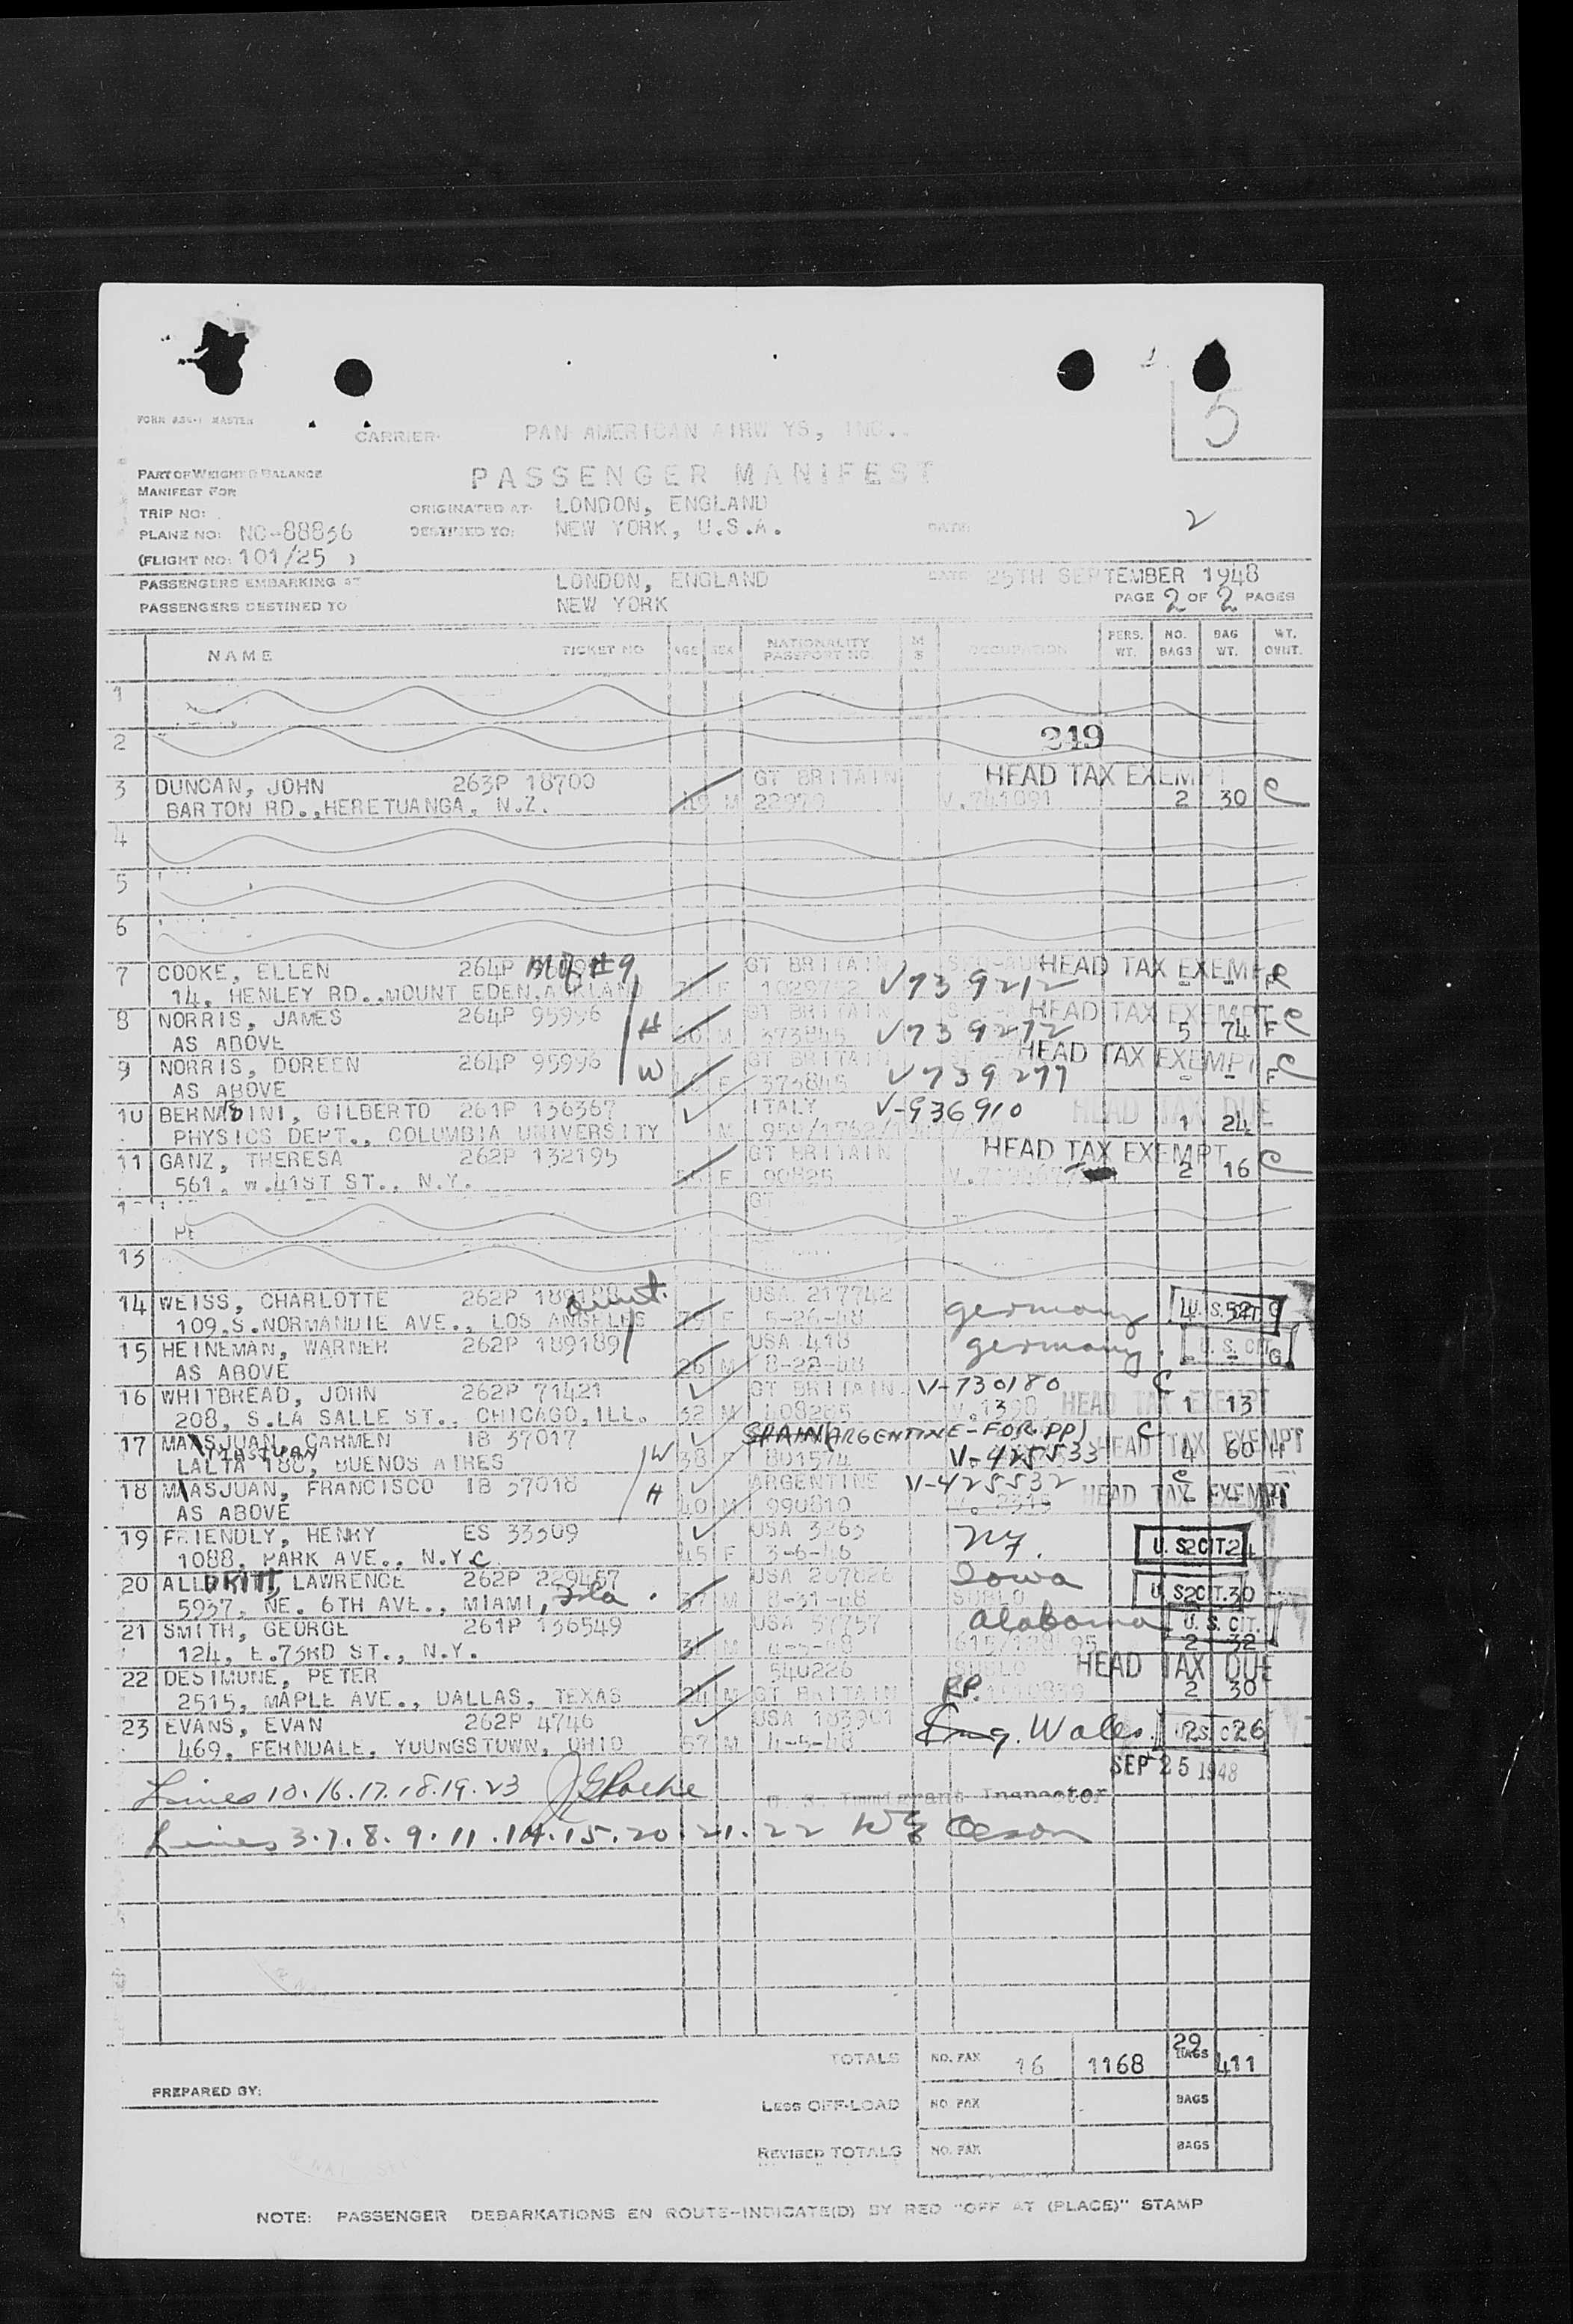 5
FORM MASTER
CARRIER PAN AMERICAN AIRW YS, INC.
PART OF WEIGHT & BALANCE
MANIFEST FOR
PASSENGER MANIFEST
TRIP NO:
ORIGINATED AT: LONDON, ENGLAND
PLANE NO: NC-88836 DESTINED TO: NEW YORK, U.S.A. DATE: 2
(FLIGHT NO: 101/25 )
PASSENGERS EMBARKING AT LONDON, ENGLAND DATE 25TH SEPTEMBER 1948
PASSENGERS DESTINED TO NEW YORK PAGE 2 OF 2 PAGES
NAME TICKET NO AGE SEX NATIONALITY PASSPORT NO. M S OCCUPATION PERS. WT. NO. BAGS BAG WT. WT. CWNT.
1
2 249
3 DUNCAN, JOHN 263P 18700 GT BRITAIN HEAD TAX EXEMPT
BARTON RD.,HERETUANGA, N.Z. 49 M 22979 V.741091 2 30 C
4
5
6
7 COOKE, ELLEN 264P #9 GT BRITAIN HEAD TAX EXEMPT
14, HENLEY RD.,MOUNT EDEN,AUKLAND F V739212 - -
8 NORRIS, JAMES 264P 95996 H GT BRITAIN HEAD TAX EXEMPT
AS ABOVE M 373845 V739272 5 74 F C
9 NORRIS, DOREEN 264P 95996 W GT BRITAIN HEAD TAX EXEMPT
AS ABOVE F 373845 V739277 - - F C
10 BERNABINI, GILBERTO 261P 136367 ITALY V-936910 HEAD TAX DUE
PHYSICS DEPT., COLUMBIA UNIVERSITY M 1 24
11 GANZ, THERESA 262P 132195 GT BRITAIN HEAD TAX EXEMPT
561, W.41ST ST., N.Y. F 90825 2 16 C
GT
13
14 WEISS, CHARLOTTE 262P aunt. USA 217742 germany U.S. CIT. G
109,S.NORMANDIE AVE., LOS ANGELES 79 F 5-26-48
15 HEINEMAN, WARNER 262P 189189 USA 418 germany U.S. CIT. G
AS ABOVE 26 M 8-22-48
16 WHITBREAD, JOHN 262P 71421 GT BRITAIN V-730180 C HEAD TAX EXEMPT
208, S.LA SALLE ST., CHICAGO,ILL. 32 M 1 13
17 MAASJUAN, CARMEN IB 37017 SPAIN (ARGENTINE-FOR.PP) C HEAD TAX EXEMPT
186, BUENOS AIRES W 38 F 801574 V-425533 4 60 4
18 MAASJUAN, FRANCISCO IB 37018 H ARGENTINE V-425532 C HEAD TAX EXEMPT
AS ABOVE 40 M 990810
19 FRIENDLY, HENRY ES 33509 USA 3265 NY. U.S. CIT.
1088, PARK AVE., N.Y.C 45 F 3-6-46 2 24
20 LAWRENCE 262P 229457 USA 267826 Iowa U.S. CIT.
5937, NE. 6TH AVE., MIAMI, Fla. 37 M 8-31-48 2 30
21 SMITH, GEORGE 261P 136549 USA 57757 Alabama U.S. CIT.
124, E.73RD ST., N.Y. M 2 32
22 DESIMONE, PETER 540226 HEAD TAX DUE
2515, MAPLE AVE., DALLAS, TEXAS 24 M GT BRITAIN RP. 2 30
23 EVANS, EVAN 262P 4746 USA 183901 Eng. Wales. U.S. CIT.
469, FERNDALE, YOUNGSTOWN, OHIO 57 M 4-5-48 2 26
SEP 25 1948
Lines 10.16.17.18.19.23 J Roche U. S. Immigrant Inspector
Lines 3.7.8.9.11.14.15.20.21.22 Olson
TOTALS NO. PAX 16 1168 29 BAGS 411
PREPARED BY:
LESS OFF-LOAD NO. PAX BAGS
REVISED TOTALS NO. PAX BAGS
NOTE: PASSENGER DEBARKATIONS EN ROUTE-INDICATE(D) BY RED "OFF AT (PLACE)" STAMP